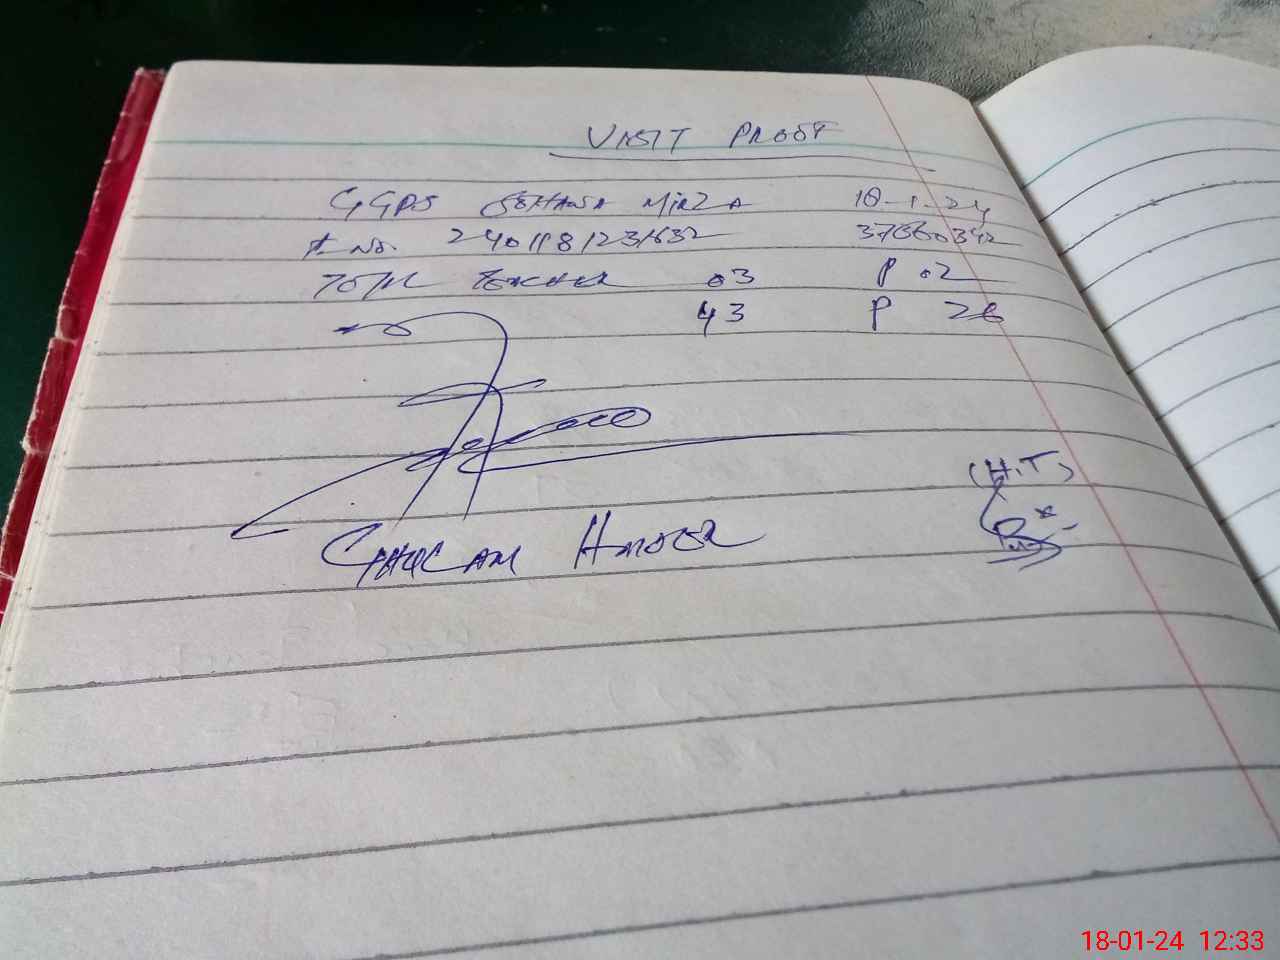 VISIT PROOF
GGPS MIRZA 18-1-24
A. No. 2401181231632 37360342
TOTAL TEACHER 03 P 02
43 P 26
(H.T)
GHULAM
18-01-24 12:33